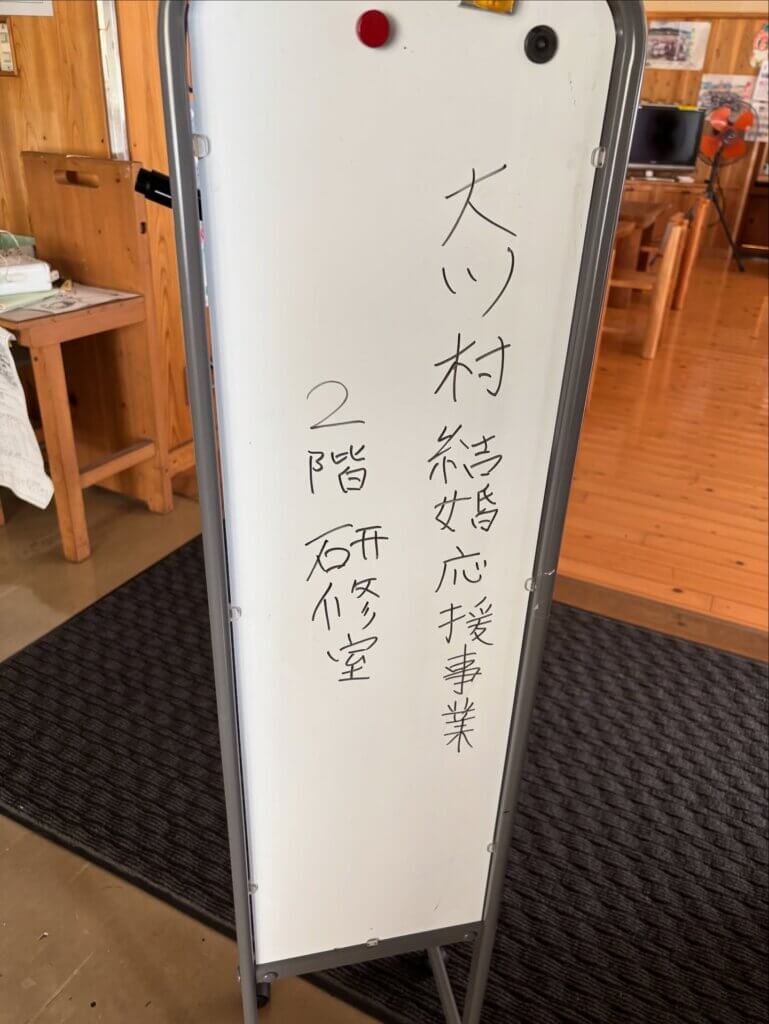 大川村 結婚応援事業
2階 研修室